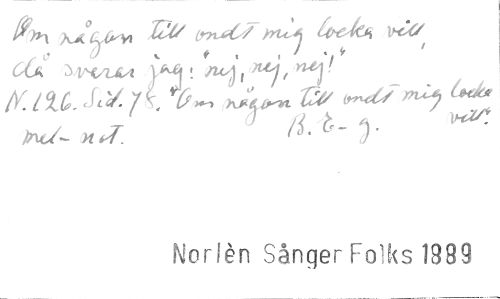 Om någon till ondt mig locka vill,
då svarar jag: "nej, nej, nej!"
N. 126. Sid. 78. "Om någon till ondt mig locka vill".
mel- not. B. E- g.
Norlèn Sånger Folks 1889